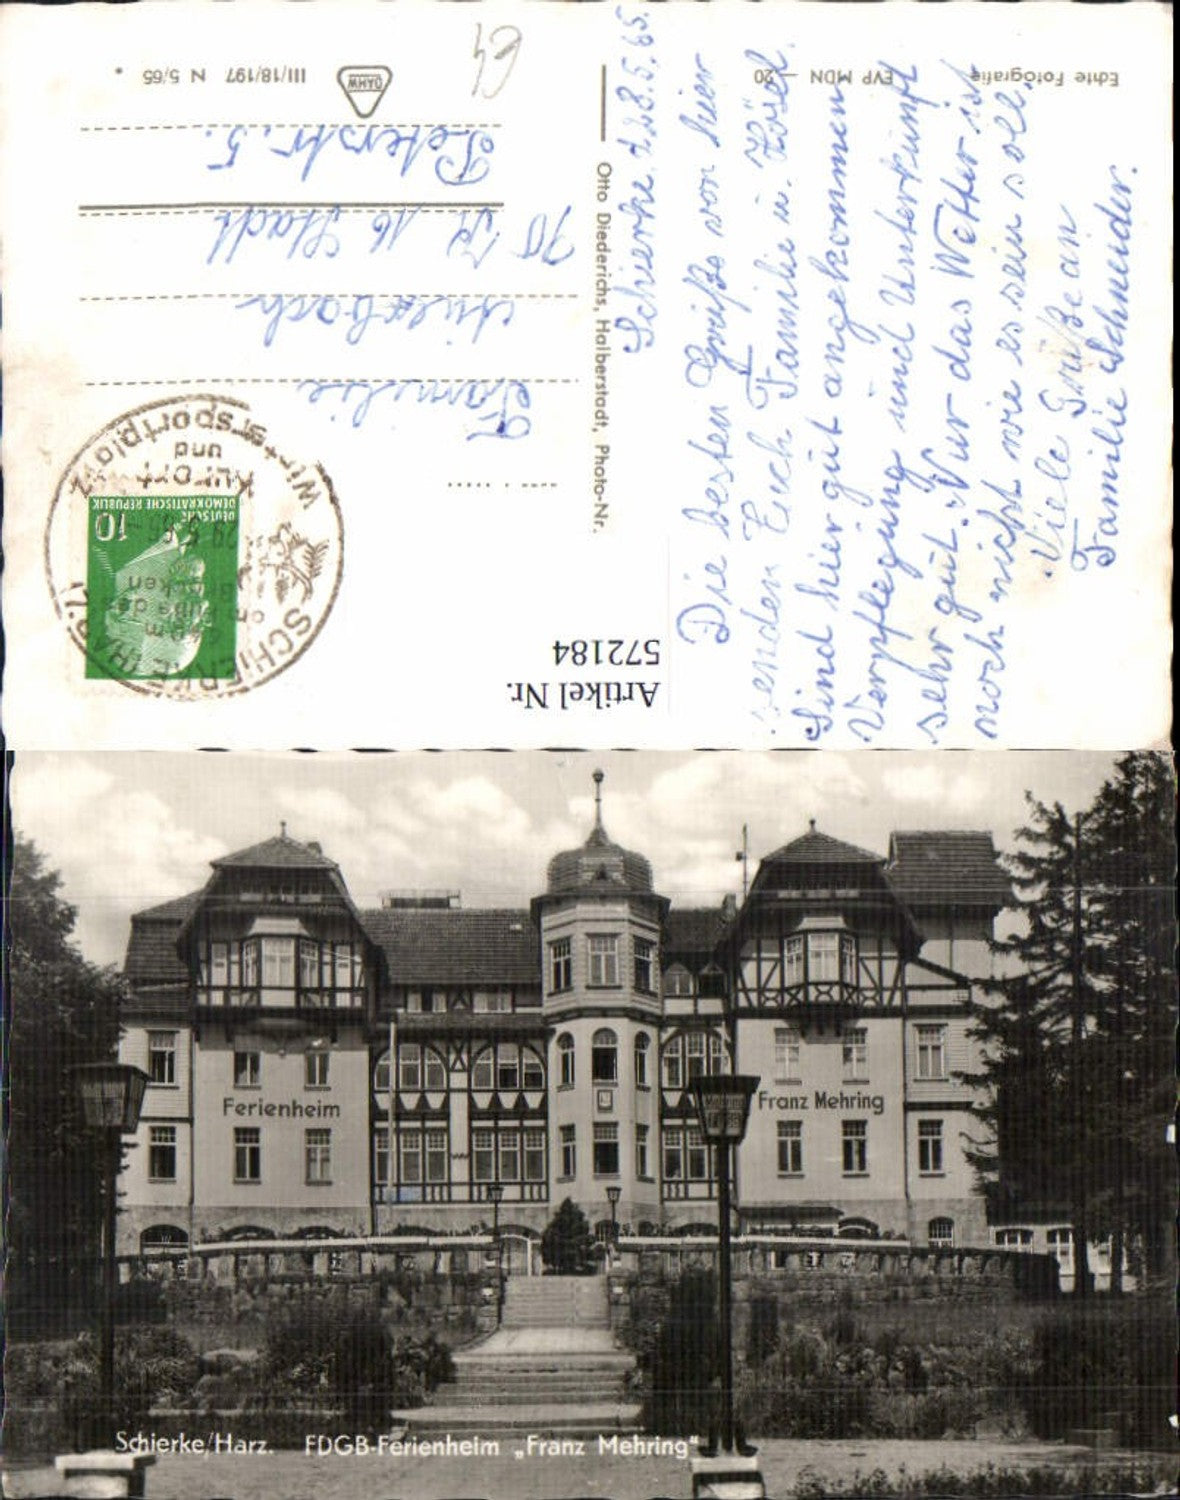 Schierke, d. 28.5.65.
Die besten Grüße von hier
senden Euch Familie u. Hösel.
Sind hier gut angekommen
Verpflegung und Unterkunft
sehr gut. Nur das Wetter ist
noch nicht wie es sein soll.
Viele Grüße an
Familie Schneider.
Echte Fotografie
EVP MDN —,20
Otto Diederichs, Halberstadt, Photo-Nr.
DAHW
III/18/197 N 5/65
Familie
70
16 Stadt
Peterstr. 5.
DEUTSCHE
DEMOKRATISCHE REPUBLIK
10
SCHIERKE (HARZ)
Kurort
und
Wintersportplatz
am Fuße des
Brocken
Artikel Nr.
572184
Ferienheim
Franz Mehring
Schierke/Harz. FDGB-Ferienheim „Franz Mehring"